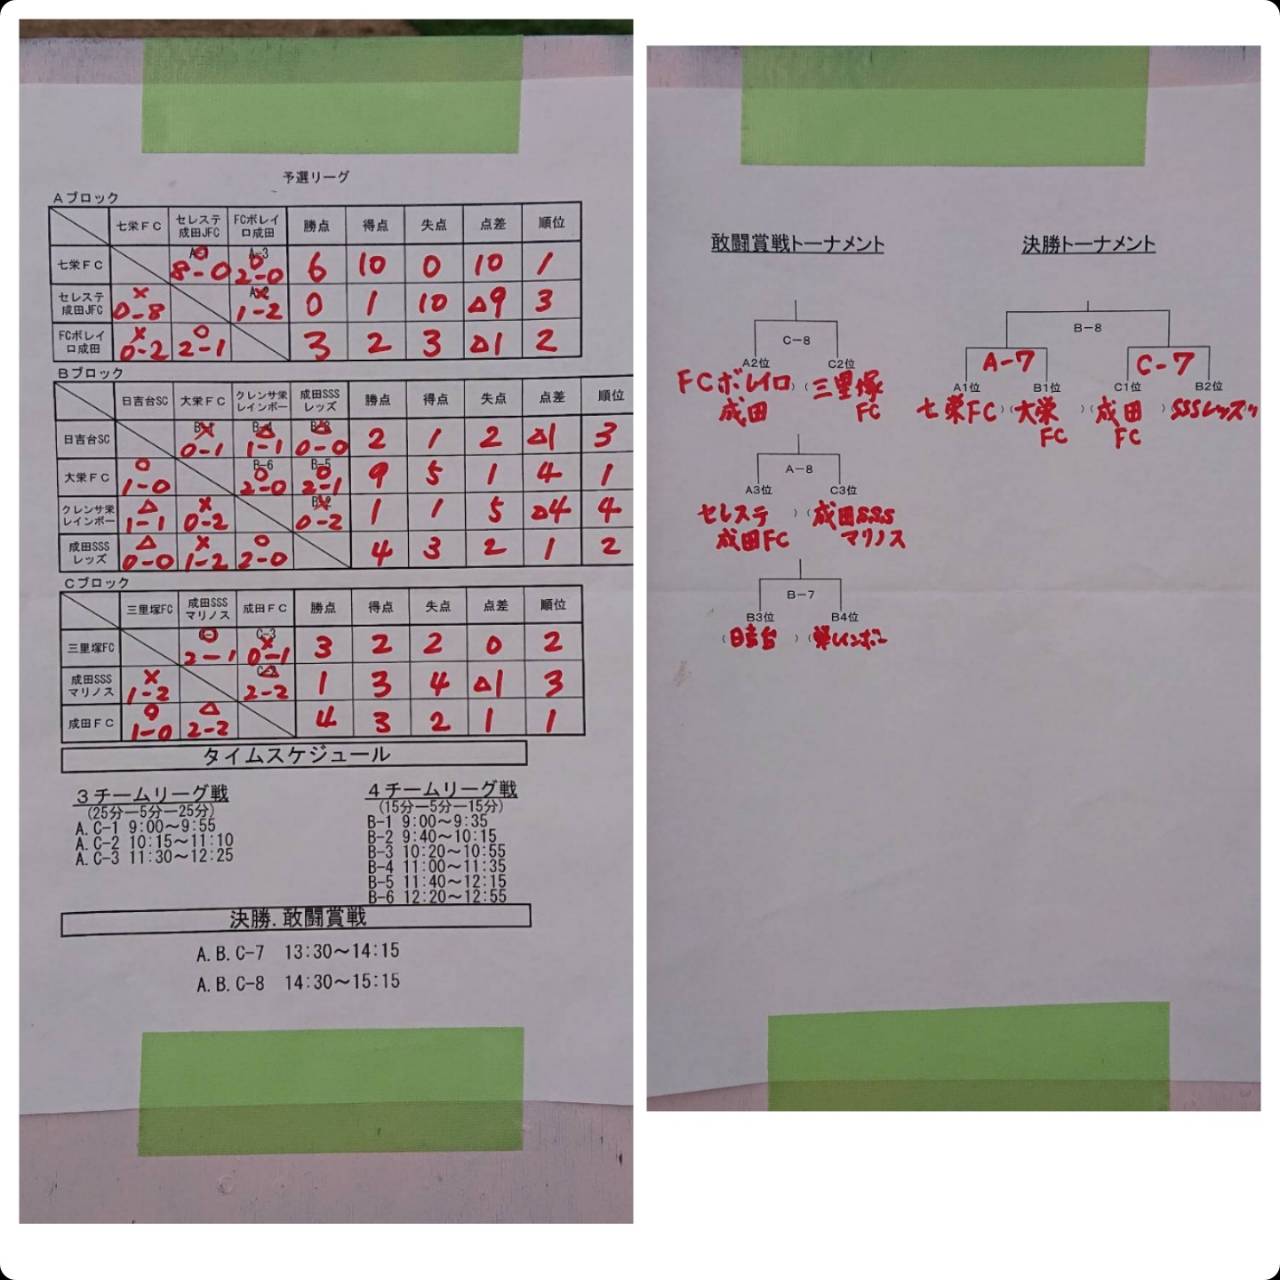 予選リーグ
Aブロック
七栄FC セレステ成田JFC FCボレイロ成田 勝点 得点 失点 点差 順位
七栄FC ○ 8-0 A-3 ○ 2-0 6 10 0 10 1
セレステ成田JFC × 0-8 × 1-2 0 1 10 △9 3
FCボレイロ成田 × 0-2 ○ 2-1 3 2 3 △1 2
Bブロック
日吉台SC 大栄FC クレンサ栄レインボー 成田SSSレッズ 勝点 得点 失点 点差 順位
日吉台SC × 0-1 △ 1-1 △ 0-0 2 1 2 △1 3
大栄FC ○ 1-0 B-6 ○ 2-0 B-5 ○ 2-1 9 5 1 4 1
クレンサ栄レインボー △ 1-1 × 0-2 B-2 × 0-2 1 1 5 △4 4
成田SSSレッズ △ 0-0 × 1-2 ○ 2-0 4 3 2 1 2
Cブロック
三里塚FC 成田SSSマリノス 成田FC 勝点 得点 失点 点差 順位
三里塚FC ○ 2-1 C-3 × 0-1 3 2 2 0 2
成田SSSマリノス × 1-2 △ 2-2 1 3 4 △1 3
成田FC ○ 1-0 △ 2-2 4 3 2 1 1
タイムスケジュール
3チームリーグ戦
(25分―5分―25分)
A.C-1 9:00～9:55
A.C-2 10:15～11:10
A.C-3 11:30～12:25
4チームリーグ戦
(15分―5分―15分)
B-1 9:00～9:35
B-2 9:40～10:15
B-3 10:20～10:55
B-4 11:00～11:35
B-5 11:40～12:15
B-6 12:20～12:55
決勝.敢闘賞戦
A.B.C-7 13:30～14:15
A.B.C-8 14:30～15:15
敢闘賞戦トーナメント
C-8
A2位 C2位
FCボレイロ成田 )( 三里塚FC
A-8
A3位 C3位
セレステ成田FC )( 成田SSSマリノス
B-7
B3位 B4位
( 日吉台 )( 栄レインボー
決勝トーナメント
B-8
A-7 C-7
A1位 B1位 C1位 B2位
七栄FC )( 大栄FC )( 成田FC )( SSSレッズ